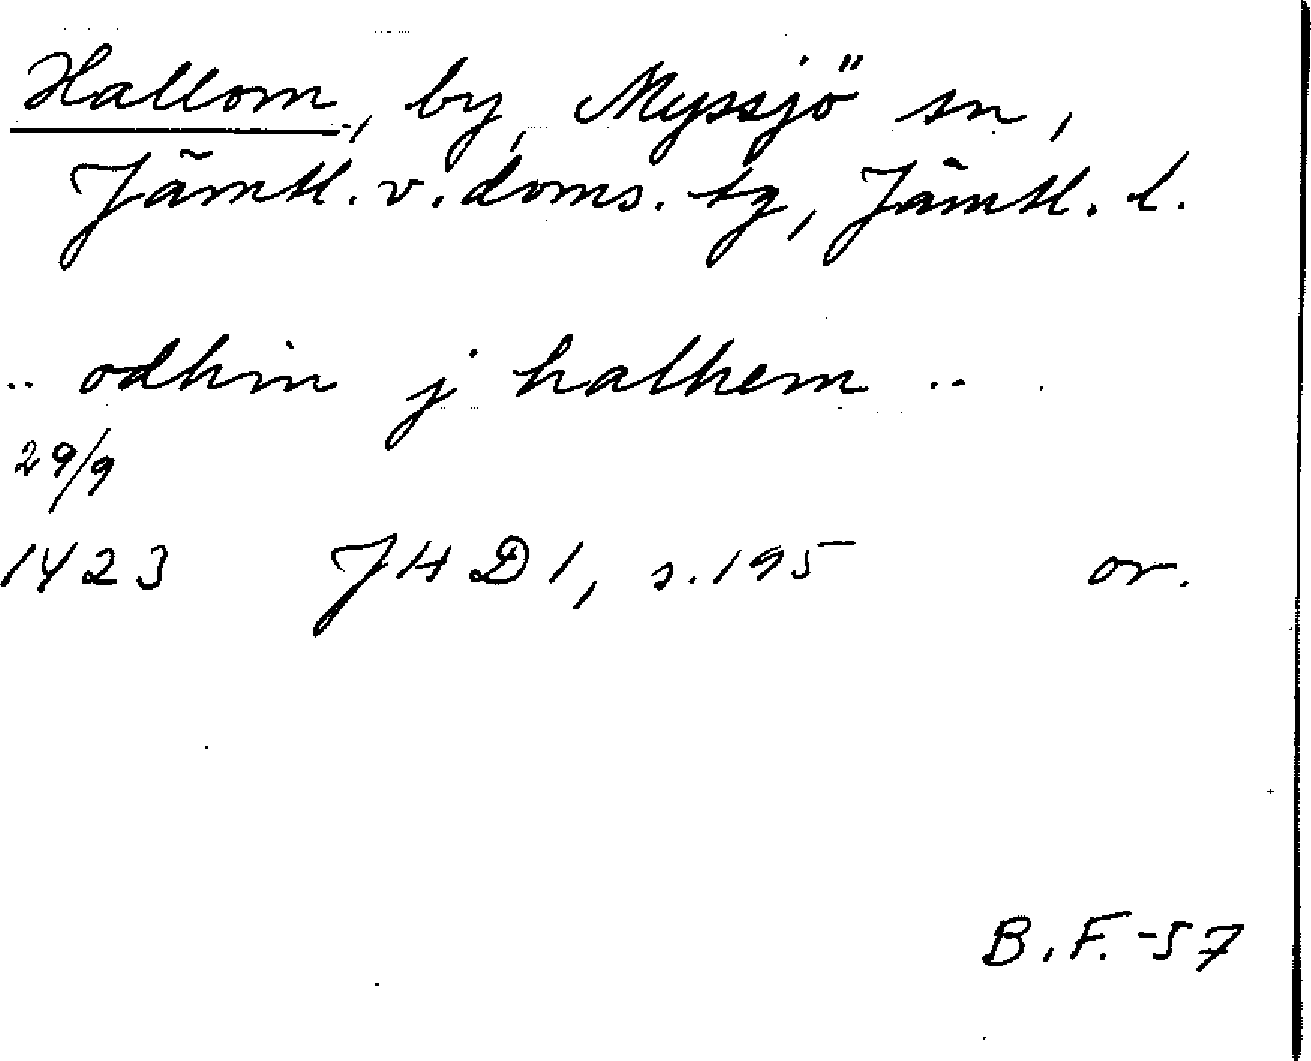 Hallom, by, Myssjö sn,
Jämtl. v. doms. tg, Jämtl. l.
.. odhin j halhem ..
29/9
1423 JHD1, s.195 or.
B.F.-57